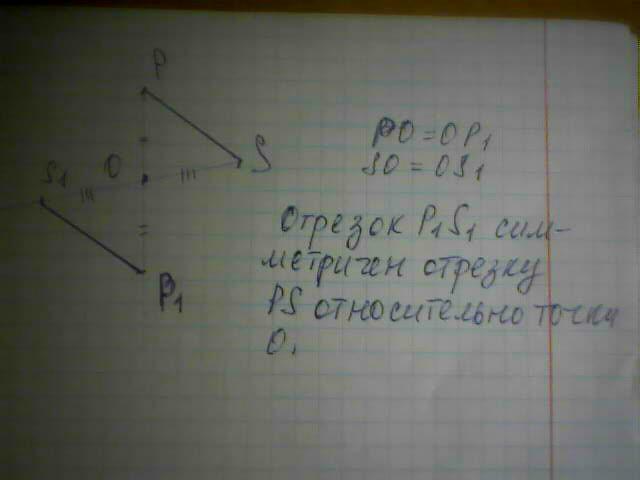 P
O
S
S₁
P₁
PO = OP₁
SO = OS₁
Отрезок P₁S₁ сим-
метричен отрезку
PS относительно точки
O.